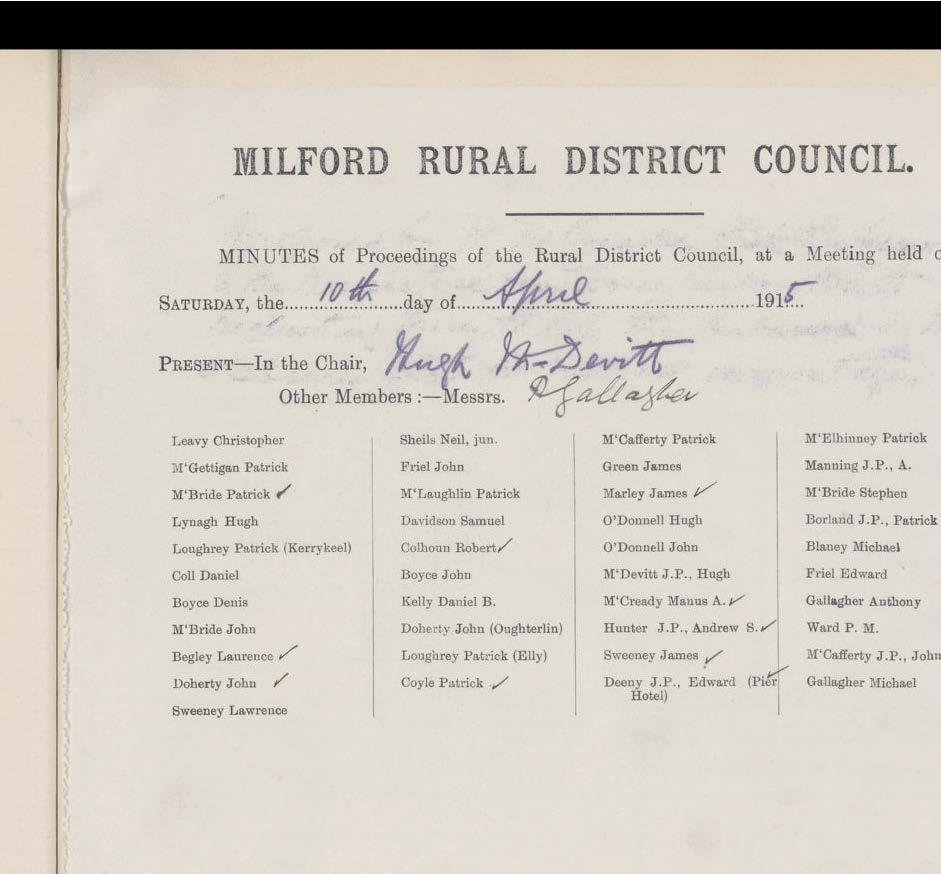 MILFORD RURAL DISTRICT COUNCIL.
MINUTES of Proceedings of the Rural District Council, at a Meeting held
SATURDAY, the 10th day of April 1915
PRESENT—In the Chair, Hugh McDevitt
Other Members :—Messrs. P Gallagher
Leavy Christopher
M'Gettigan Patrick
M'Bride Patrick ✓
Lynagh Hugh
Loughrey Patrick (Kerrykeel)
Coll Daniel
Boyce Denis
M'Bride John
Begley Laurence ✓
Doherty John ✓
Sweeney Lawrence
Sheils Neil, jun.
Friel John
M'Laughlin Patrick
Davidson Samuel
Colhoun Robert ✓
Boyce John
Kelly Daniel B.
Doherty John (Oughterlin)
Loughrey Patrick (Elly)
Coyle Patrick ✓
M'Cafferty Patrick
Green James
Marley James ✓
O'Donnell Hugh
O'Donnell John
M'Devitt J.P., Hugh
M'Cready Manus A. ✓
Hunter J.P., Andrew S. ✓
Sweeney James ✓
Deeny J.P., Edward (Pier ✓
Hotel)
M'Elhinney Patrick
Manning J.P., A.
M'Bride Stephen
Borland J.P., Patrick
Blaney Michael
Friel Edward
Gallagher Anthony
Ward P. M.
M'Cafferty J.P., John
Gallagher Michael